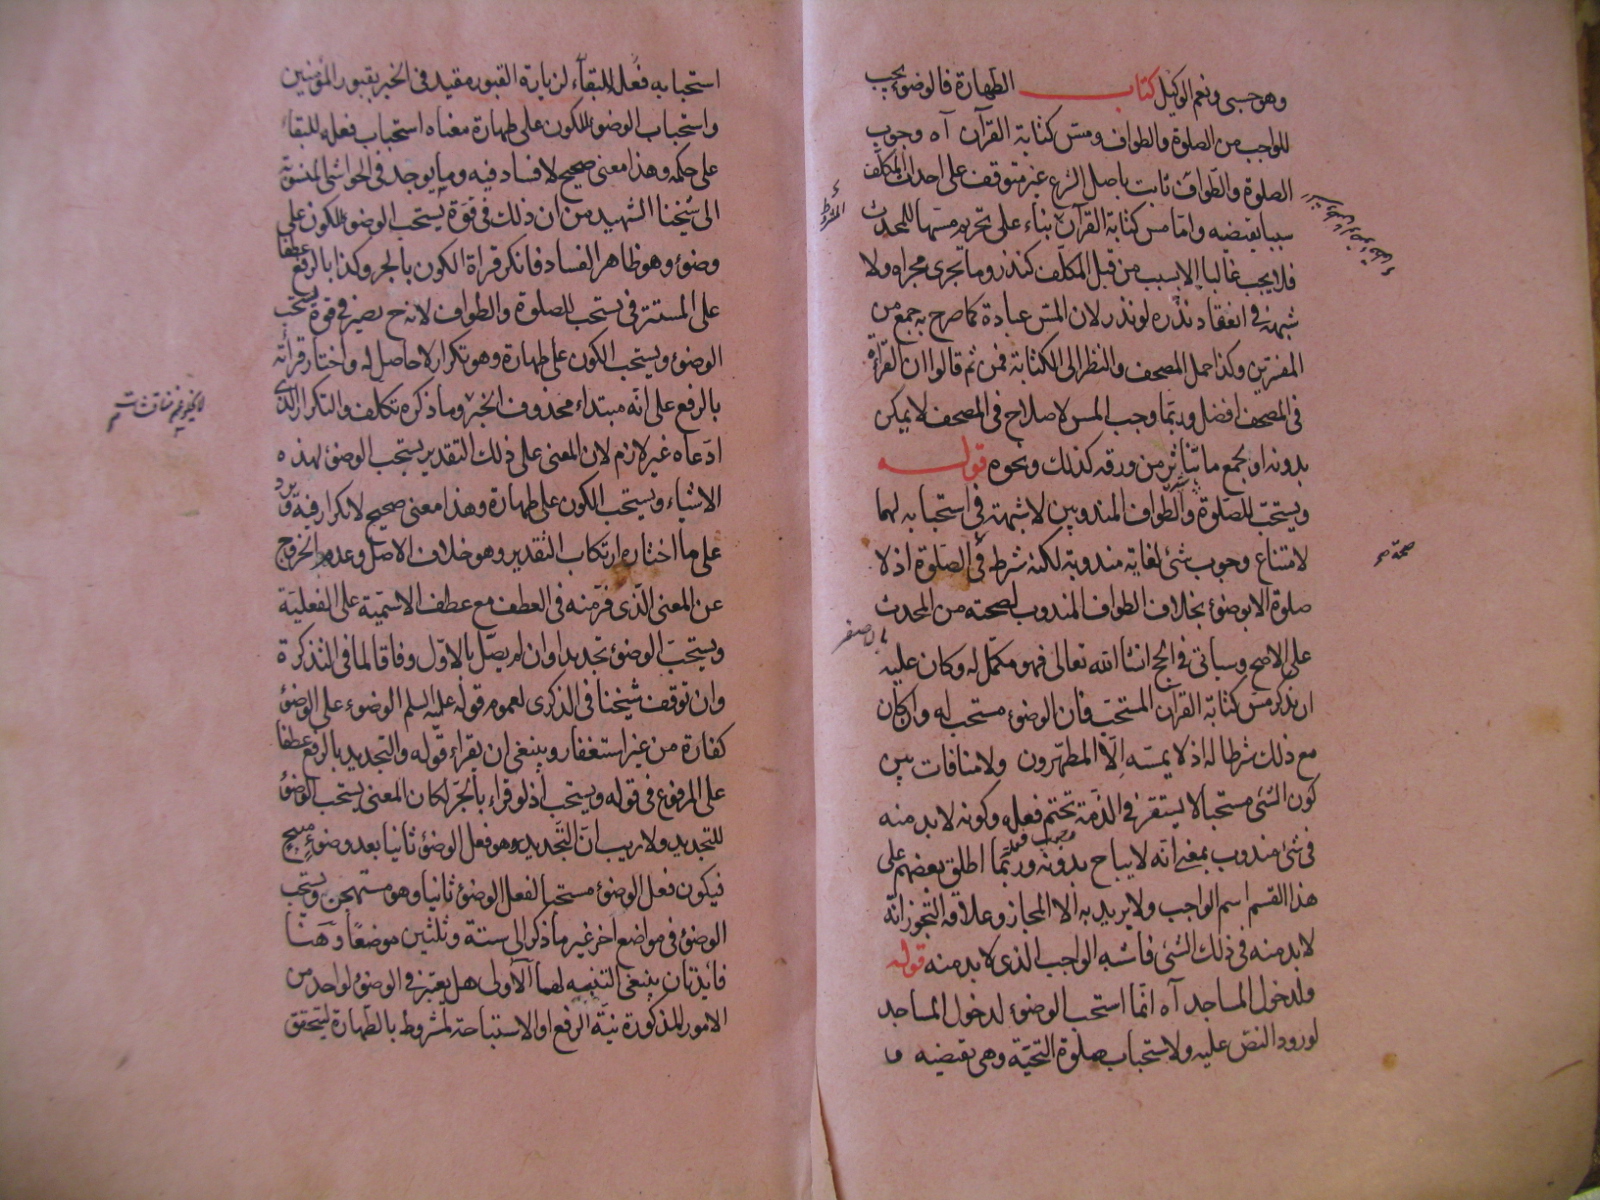 وهو حسبى ونعم الوكيل كتاب الطهارة فالوضوء يجب
للواجب من الصلوة والطواف ومس كتابة القرآن آه وجوب
الصلوة والطواف ثابت باصل الشرع غير متوقف على احداث المكلف
سببا يقتضيه واما مس كتابة القرآن بناء على تحريم مسها للمحدث
فلا يجب غالبا الا بسبب من قبل المكلف كنذر وما يجرى مجراه ولا
شبهة فى انعقاد نذره لو نذر لان المس عبادة كما صرح به جمع من
المفسرين وكذا حمل المصحف والنظر الى الكتابة فمن ثم قالوا ان القراءة
فى المصحف افضل وربما وجب المس لاصلاح فى المصحف لا يمكن
بدونه او لجمع ما تناثر من ورقه كذلك ونحوه قوله
ويستحب للصلوة والطواف المندوبين لا شبهة فى استحبابه لهما
لامتناع وجوب شئ لغاية مندوبة لكنه شرط فى الصلوة اذ لا
صلوة الا بوضوء بخلاف الطواف المندوب لصحته من المحدث
على الاصح وسياتى فى الحج انشا الله تعالى فهو مكمل له وكان عليه
ان يذكر مس كتابة القرآن المستحب فان الوضوء مستحب له وان كان
مع ذلك شرطا له اذ لا يمسه الا المطهرون ولا منافات بين
كون الشئ مستحبا لا يستقر فى الذمة تحتم فعله وكونه لا بد منه
فى شئ مندوب بمعنى انه لا يباح بدونه وربما اطلق بعضهم على
هذا القسم اسم الواجب ولا يريد به الا المجاز وعلاقة التجوز انه
لا بد منه فى ذلك الشئ فاشبه الواجب الذى لا بد منه قوله
ولدخول المساجد آه انما استحب الوضوء لدخول المساجد
لورود النص عليه ولاستحباب صلوة التحية وهى تقتضيه
استحبابه فعل للبقاء لزيارة القبور مقيد فى الخبر بقبور المؤمنين
واستحباب الوضوء للكون على طهارة معناه استحباب فعله للبقاء
على حكمه وهذا معنى صحيح لا فساد فيه وما يوجد فى الحواشى المنسوبة
الى شيخنا الشهيد من ان ذلك فى قوة يستحب الوضوء للكون على
وضوء وهو ظاهر الفساد فانكر قراة الكون بالجر وكذا بالرفع عطفا
على المستتر فى يستحب للصلوة والطواف لانه ح يصير فى قوة يستحب
الوضوء ويستحب الكون على طهارة وهو تكرار لا حاصل له واختار قرائته
بالرفع على انه مبتداء محذوف الخبر وما ذكره تكلف والتكرار الذى
ادعاه غير لازم لان المعنى على ذلك التقدير يستحب الوضوء لهذه
الاشياء ويستحب الكون على طهارة وهذا معنى صحيح لا تكرار فيه ويرد
على ما اختاره ارتكاب التقدير وهو خلاف الاصل وعدم الخروج
عن المعنى الذى فر منه فى العطف مع عطف الاسمية على الفعلية
ويستحب الوضوء تجديدا وان لم يصل بالاول وفاقا لما فى التذكرة
وان توقف شيخنا فى الذكرى لعموم قوله عليه السلم الوضوء على الوضوء
كفارة من غير استغفار وينبغى ان يقراء قوله والتجديد بالرفع عطفا
على المرفوع فى قوله ويستحب اذ لو قراء بالجر لكان المعنى يستحب الوضوء
للتجديد ولا ريب ان التجديد هو فعل الوضوء ثانيا بعد وضوء مبيح
فيكون فعل الوضوء مستحبا لفعل الوضوء ثانيا وهو مستهجن ويستحب
الوضوء فى مواضع اخر غير ما ذكر الى ستة وثلثين موضعا وهنا
فائدتان ينبغى التنبيه لهما الاولى هل يعتبر فى الوضوء لواحد من
الامور المذكورة نية الرفع او الاستباحة لمشروط بالطهارة ليتحقق